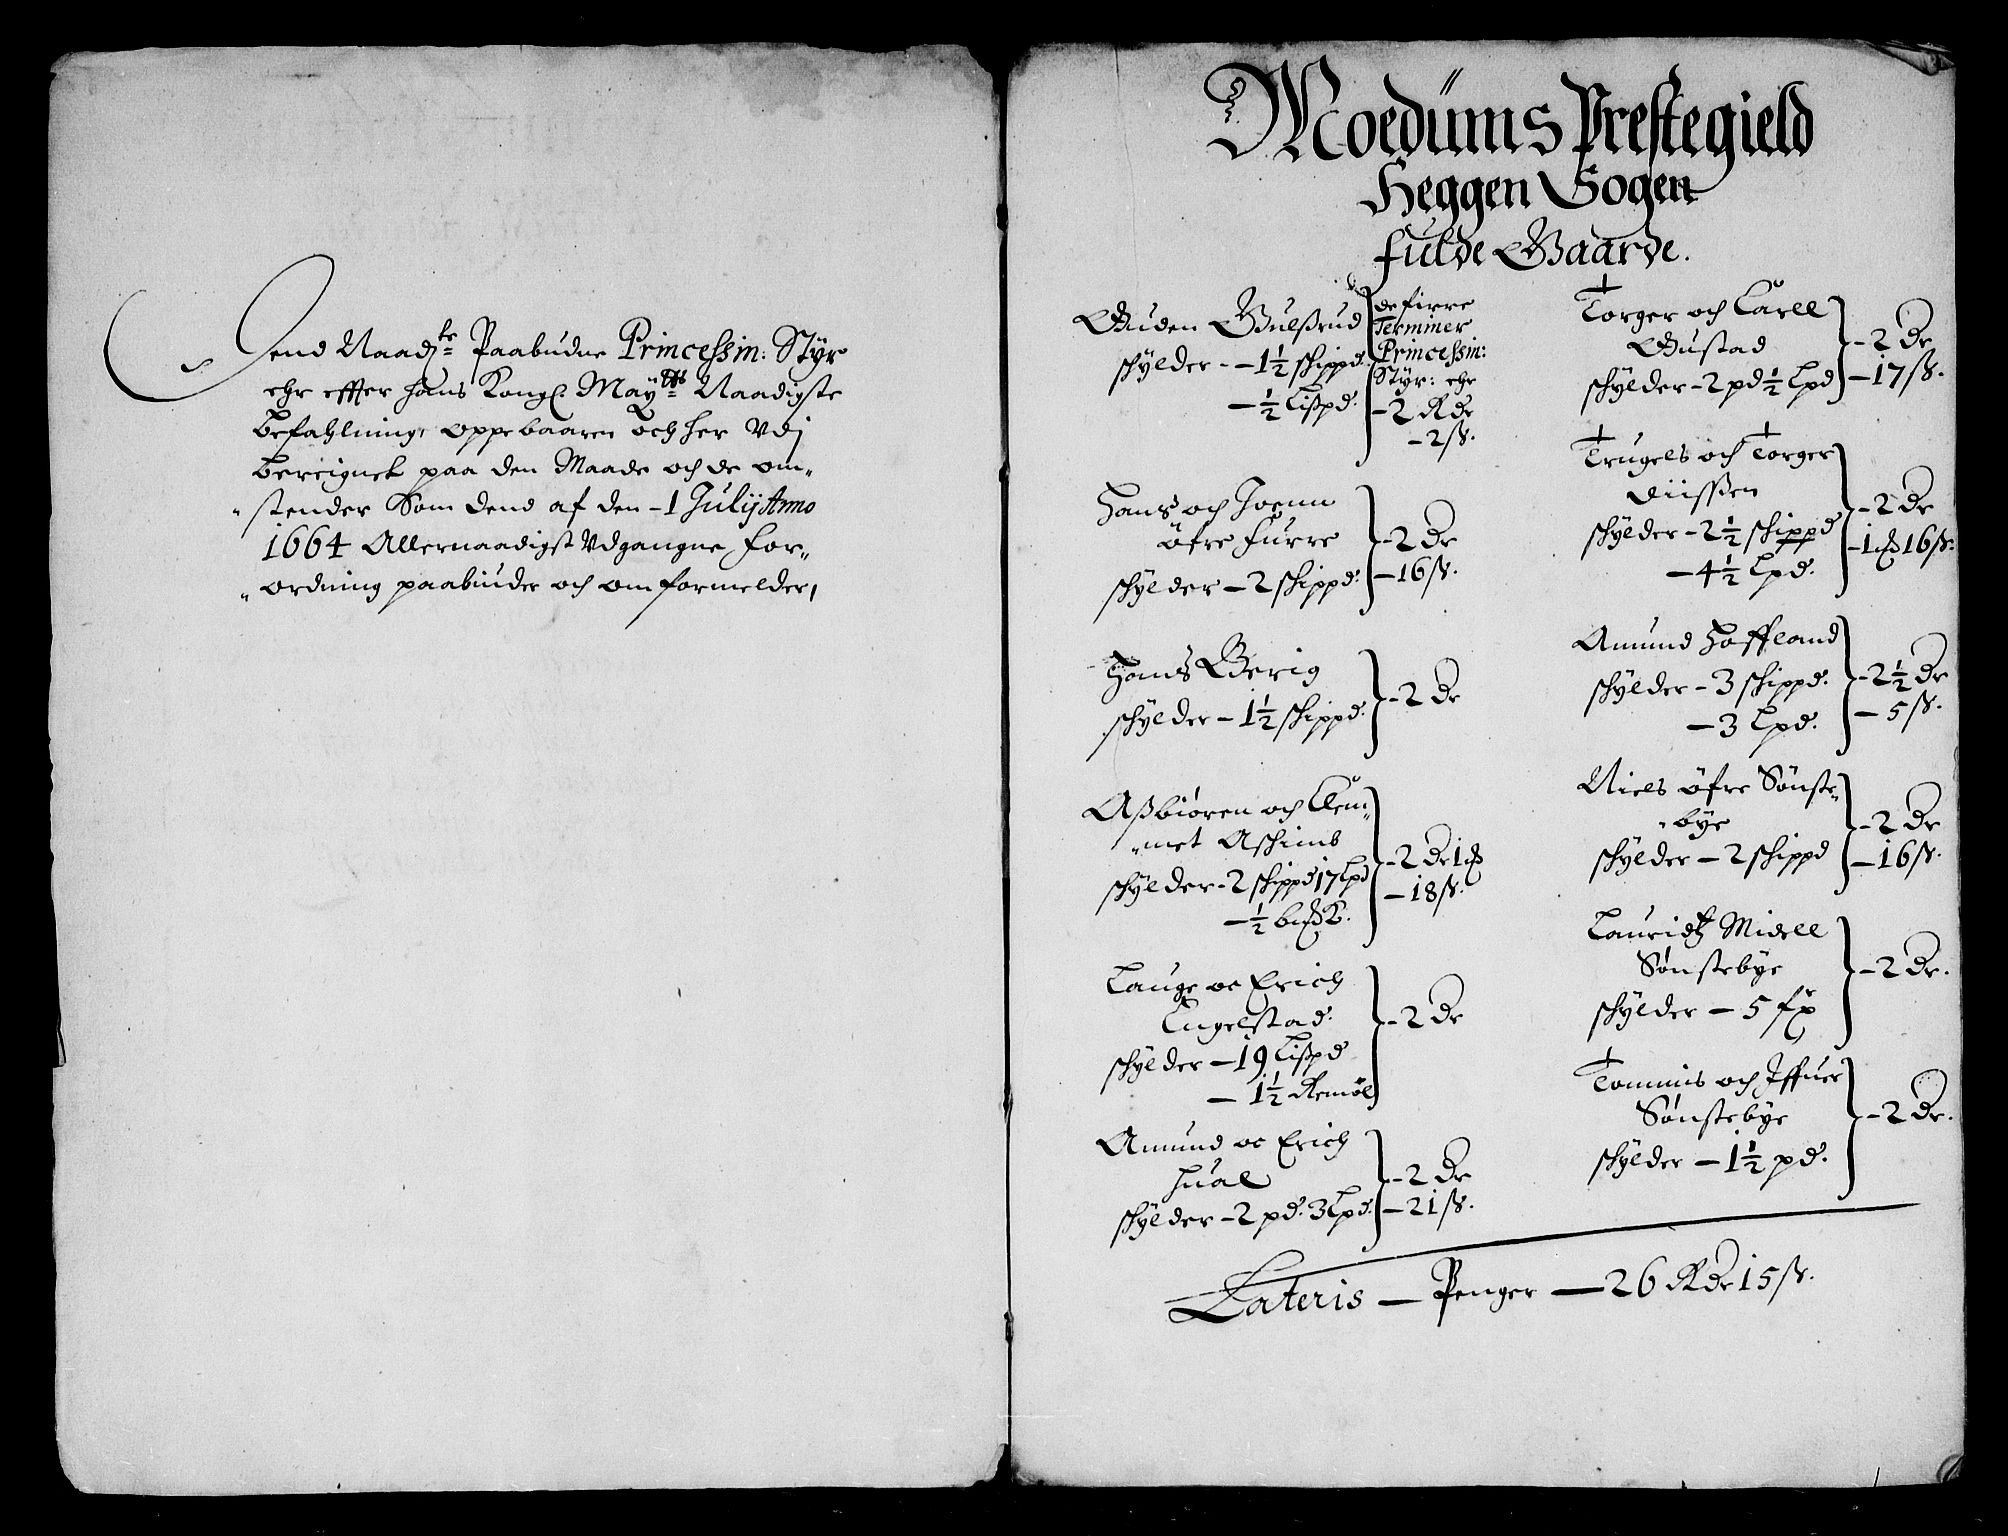 Dend Naadste Paabudne Princessin: Styr
ehr effter Hans Kongl. Maytts Naadigste
Befahlning, oppebaaren och her Udj
Bereignet paa den Maade och de om-
stender Som dend af den - 1 Julij Anno
1664 Allernaadigst Udgangne For-
ordning paabiuder och omformelder,
Moedüms Prestegield
Heggen Sogen
Fulde Gaarde.
Guden Gulßrud
schylder - - 1½ schippd.
- ½ Lißpd.
de firre
Terminer
Princessin:
Styr: ehr
- 2 Rdr
- 2 ß.
Hans och Joenn
öfre Furre
schylder - 2 schippd.
- 2 Dr
- 16 ß.
Hans Gerig
schylder - 1½ schippd.
- 2 Dr
Aßbiören och Clem-
met Aschimb
schylder - 2 schippd 17 Lpd
- ½ K.
- 2 Dr 1
- 18 ß.
Lauge oc Erich
Engelstad.
schylder - 19 Lißpd
- 1½ Remöl
- 2 Dr
Amund oc Erich
Hual
schylder - 2 pd. 3 Lpd.
- 2 Dr
- 21 ß.
Torger och Carell
Gustad
schylder - 2 pd ½ Lpd
- 2 Dr
- 17 ß.
Trugels och Torger
Diißen
schylder - 2½ schippd
- 4½ Lpd.
- 2 Dr
- 1 16 ß.
Amund Hoffland
schylder - 3 schippd.
- 3 Lpd.
- 2½ Dr
- 5 ß.
Niels öfre Sönste-
bye
schylder - 2 schippd
- 2 Dr
- 16 ß.
Lauridtz Midell
Sønstebye
schylder - 5 fx
- 2 Dr.
Tommis och Iffuer
Sønstebye
schylder - 1½ pd.
- 2 Dr.
Lateris - Penger - 26 Rdr 15 ß.